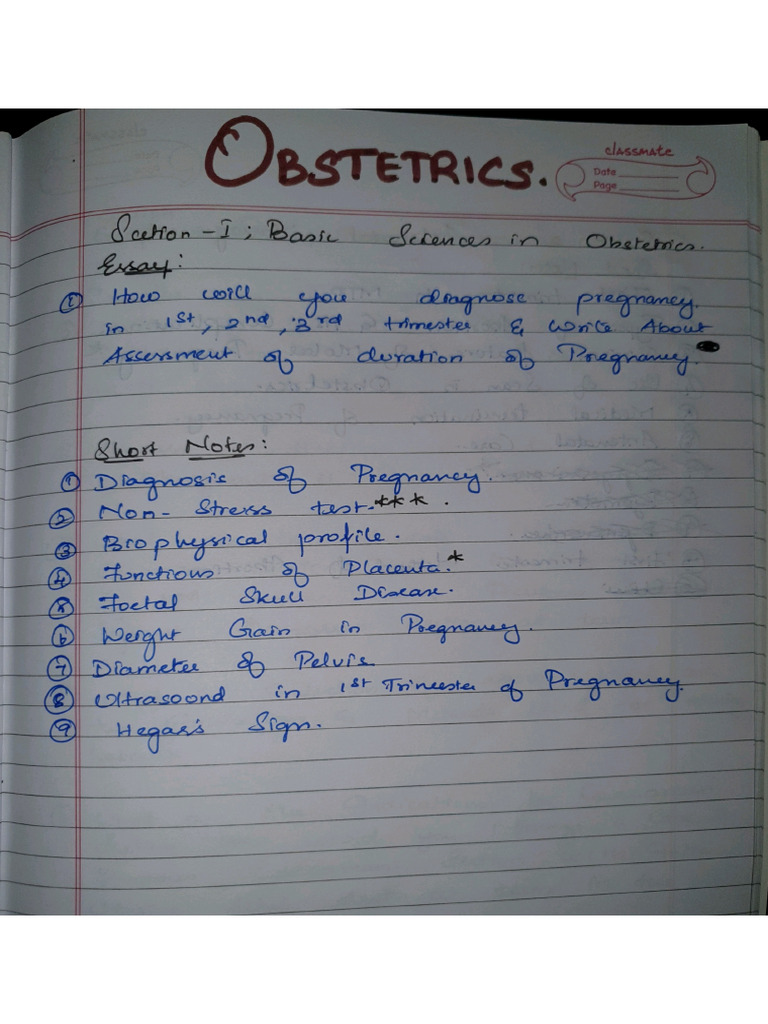 OBSTETRICS.
classmate
Date
Page
Section - I ; Basic Sciences in Obstetrics.
Essay :
① How will you diagnose pregnancy.
in 1st, 2nd, 3rd trimester & Write About
Assessment of duration of Pregnancy.
Short Notes :
① Diagnosis of Pregnancy.
② Non - Stress test.***.
③ Biophysical profile.
④ Functions of Placenta.*
⑤ Foetal Skull Disease.
⑥ Weight Gain in Pregnancy.
⑦ Diameter of Pelvis
⑧ Ultrasoond in 1st Trimester of Pregnancy.
⑨ Hegar's Sign.